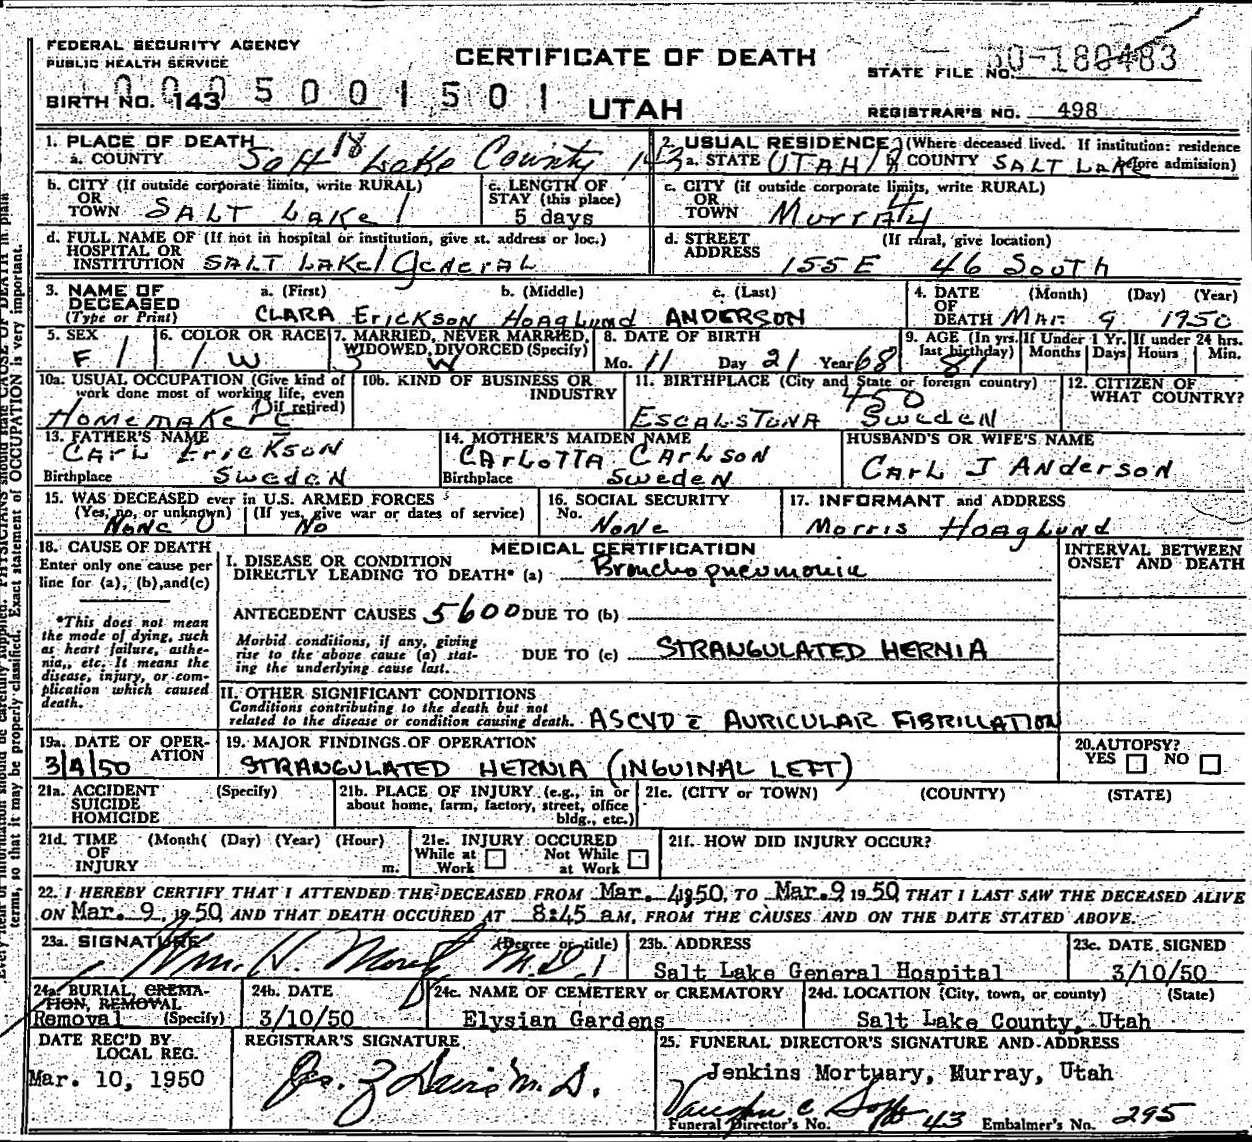 FEDERAL SECURITY AGENCY
PUBLIC HEALTH SERVICE
CERTIFICATE OF DEATH
STATE FILE NO. 50-180483
BIRTH NO. 143
0005001501
UTAH
REGISTRAR'S NO. 498
1. PLACE OF DEATH
a. COUNTY Salt Lake County 18 143
2. USUAL RESIDENCE (Where deceased lived. If institution: residence before admission)
a. STATE UTAH b. COUNTY SALT LAKE
b. CITY (If outside corporate limits, write RURAL)
OR
TOWN SALT LAKE 1
c. LENGTH OF
STAY (this place)
5 days
c. CITY (if outside corporate limits, write RURAL)
OR
TOWN Murray
d. FULL NAME OF (If not in hospital or institution, give st. address or loc.)
HOSPITAL OR
INSTITUTION SALT LAKE General
d. STREET (If rural, give location)
ADDRESS 155 E 46 South
3. NAME OF
DECEASED
(Type or Print)
a. (First) b. (Middle) c. (Last)
CLARA Erickson Hoaglund ANDERSON
4. DATE (Month) (Day) (Year)
OF
DEATH Mar. 9 1950
5. SEX
F 1
6. COLOR OR RACE
1 W
7. MARRIED, NEVER MARRIED,
WIDOWED, DIVORCED (Specify)
3 W
8. DATE OF BIRTH
Mo. 11 Day 21 Year 68
9. AGE (In yrs. last birthday) 81
If Under 1 Yr. Months Days
If under 24 hrs. Hours Min.
10a. USUAL OCCUPATION (Give kind of
work done most of working life, even
if retired)
Homemaker
10b. KIND OF BUSINESS OR
INDUSTRY
11. BIRTHPLACE (City and State or foreign country)
450
ESCALSTUNA Sweden
12. CITIZEN OF
WHAT COUNTRY?
13. FATHER'S NAME
Carl Erickson
Birthplace Sweden
14. MOTHER'S MAIDEN NAME
CArLOTTA CArlson
Birthplace Sweden
HUSBAND'S OR WIFE'S NAME
Carl J Anderson
15. WAS DECEASED ever in U.S. ARMED FORCES
(Yes, no, or unknown) (If yes, give war or dates of service)
None 0 No
16. SOCIAL SECURITY
No. None
17. INFORMANT and ADDRESS
Morris Hoaglund
18. CAUSE OF DEATH
Enter only one cause per
line for (a), (b), and (c)
*This does not mean
the mode of dying, such
as heart failure, asthe-
nia, etc. It means the
disease, injury, or com-
plication which caused
death.
MEDICAL CERTIFICATION
I. DISEASE OR CONDITION
DIRECTLY LEADING TO DEATH* (a) Bronchopneumonia
INTERVAL BETWEEN
ONSET AND DEATH
ANTECEDENT CAUSES 5600 DUE TO (b)
Morbid conditions, if any, giving
rise to the above cause (a) stat-
ing the underlying cause last.
DUE TO (c) STRANGULATED HERNIA
II. OTHER SIGNIFICANT CONDITIONS
Conditions contributing to the death but not
related to the disease or condition causing death. ASCVD c̄ AURICULAR FIBRILLATION
19a. DATE OF OPER-
ATION
3/4/50
19. MAJOR FINDINGS OF OPERATION
STRANGULATED HERNIA (INGUINAL LEFT)
20. AUTOPSY?
YES NO
21a. ACCIDENT (Specify)
SUICIDE
HOMICIDE
21b. PLACE OF INJURY (e.g., in or
about home, farm, factory, street, office
bldg., etc.)
21c. (CITY or TOWN) (COUNTY) (STATE)
21d. TIME (Month( (Day) (Year) (Hour)
OF
INJURY m.
21e. INJURY OCCURED
While at Work Not While at Work
21f. HOW DID INJURY OCCUR?
22. I HEREBY CERTIFY THAT I ATTENDED THE DECEASED FROM Mar. 4, 1950, TO Mar. 9 1950 THAT I LAST SAW THE DECEASED ALIVE
ON Mar. 9, 1950 AND THAT DEATH OCCURED AT 8:45 aM, FROM THE CAUSES AND ON THE DATE STATED ABOVE.
23a. SIGNATURE (Degree or title)
Wm. H. M.D. 1
23b. ADDRESS
Salt Lake General Hospital
23c. DATE SIGNED
3/10/50
24a. BURIAL, CREMA-
TION, REMOVAL
Removal (Specify)
24b. DATE
3/10/50
24c. NAME OF CEMETERY or CREMATORY
Elysian Gardens
24d. LOCATION (City, town, or county) (State)
Salt Lake County, Utah
DATE REC'D BY
LOCAL REG.
Mar. 10, 1950
REGISTRAR'S SIGNATURE
Jas. Z Davis M.D.
25. FUNERAL DIRECTOR'S SIGNATURE AND ADDRESS
Jenkins Mortuary, Murray, Utah
Vaughn C
Funeral Director's No. 43 Embalmer's No. 295